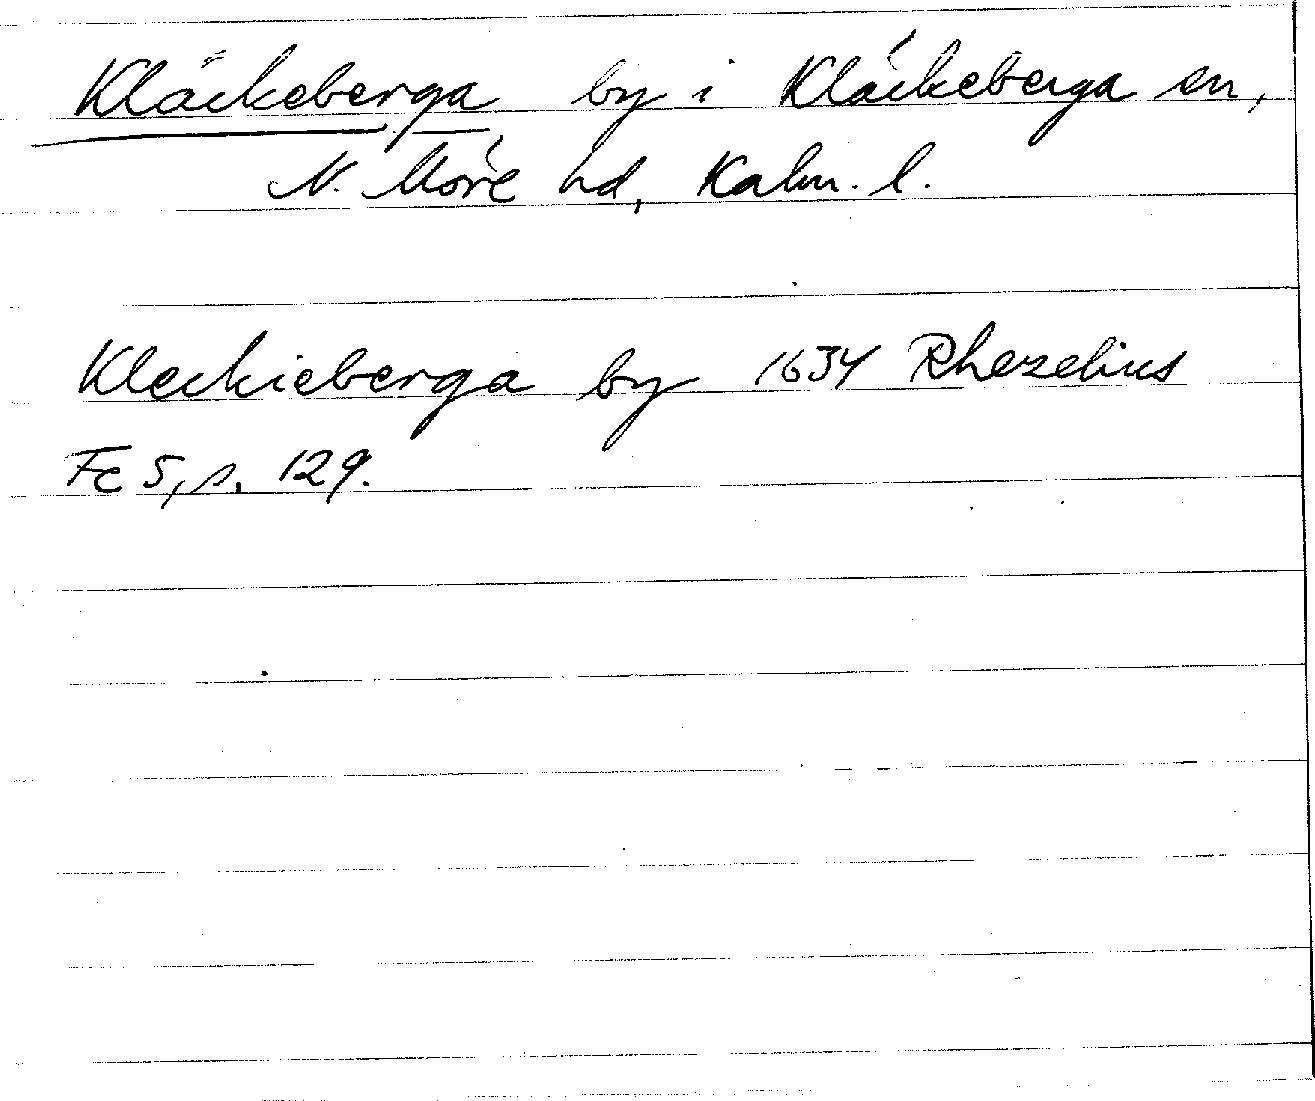 Kläckeberga by i Kläckeberga sn,
N. Möre hd, Kalm. l.
Kleckieberga by 1634 Rhezelius
Fc 5, s. 129.